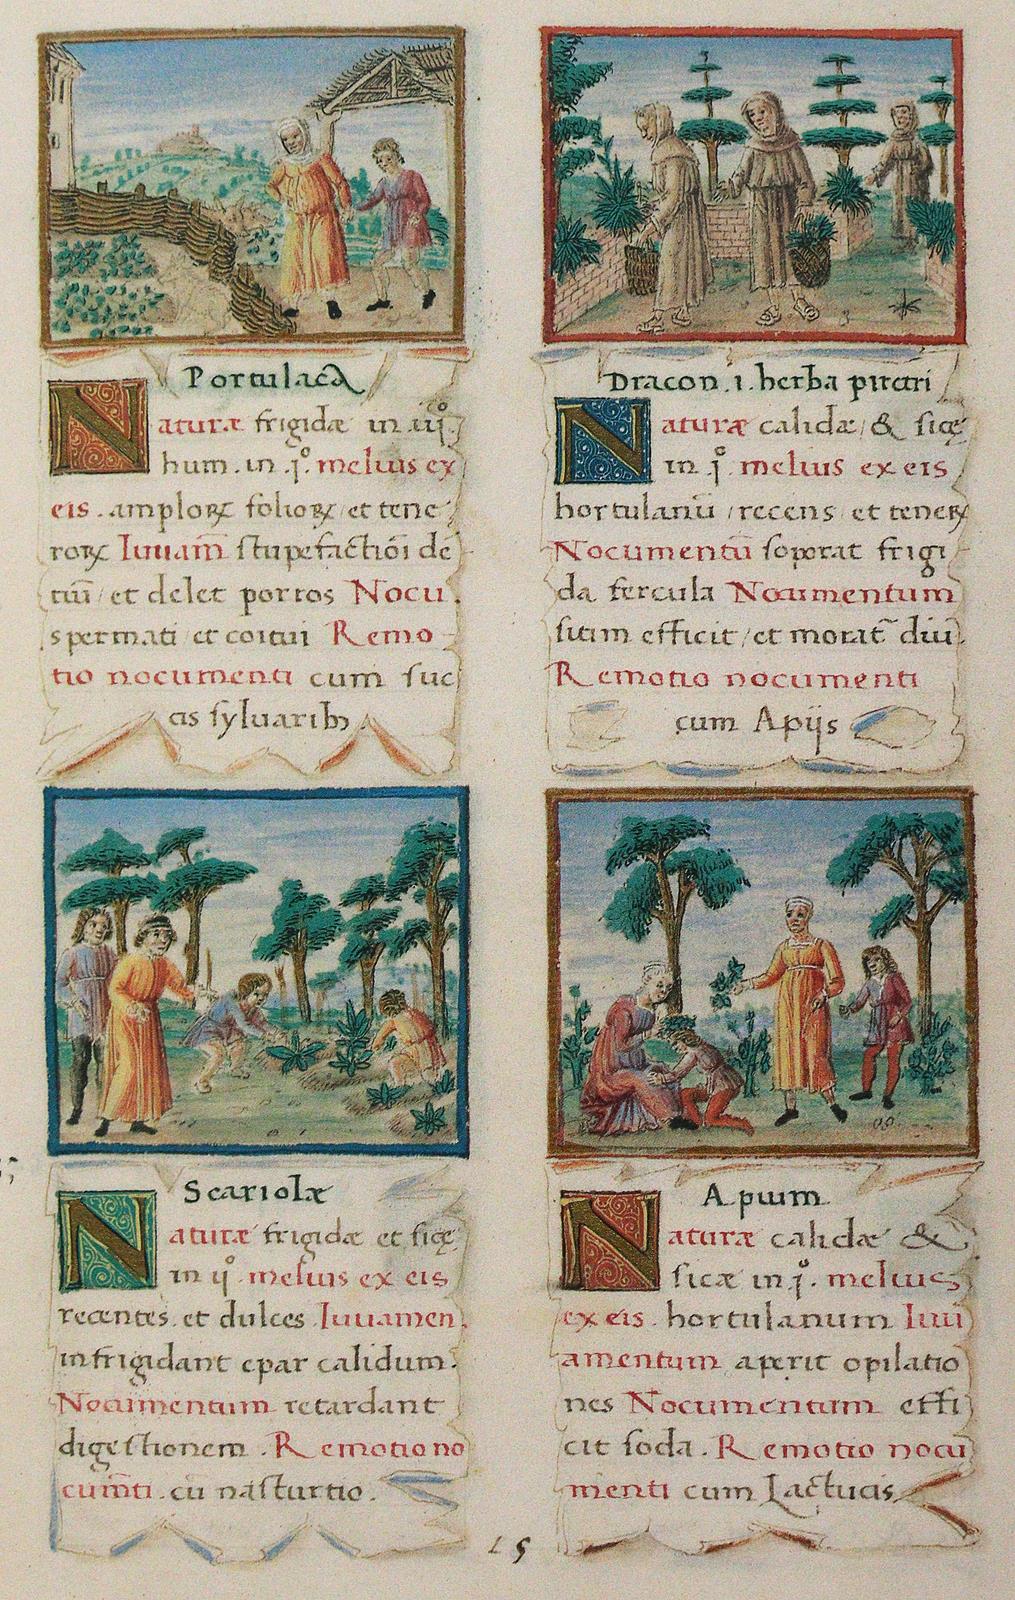 Portulaca
Naturæ frigidæ in iij.
hum. in jº. melius ex
eis. amplorꝝ foliorꝝ et tene
rorꝝ Iuuam̄ stupefactiōi dē
tiū et delet porros Nocu
spermati et coitui Remo
tio nocumenti cum suc
cis syluarib
Dracon. i. herba piretri
Naturæ calidæ & sicę
in jº. melius ex eis
hortulanū recens et tenerꝝ
Nocumentū soporat frigi
da fercula Nocumentum
sitim efficit et morat̄ diū
Remotio nocumenti
cum Apijs
Scariolæ
Naturæ frigidæ et sicę
in ijº. melius ex eis
recentes et dulces Iuuamen.
infrigidant epar calidum.
Nocumentum retardant
digestionem. Remotio no
cum̄ti. cū nasturtio.
Apium
Naturæ calidæ &
sicæ in jº. melius
ex eis. hortulanum Iuu
amentum aperit opilatio
nes Nocumentum effi
cit soda. Remotio nocu
menti cum Lactucis
15